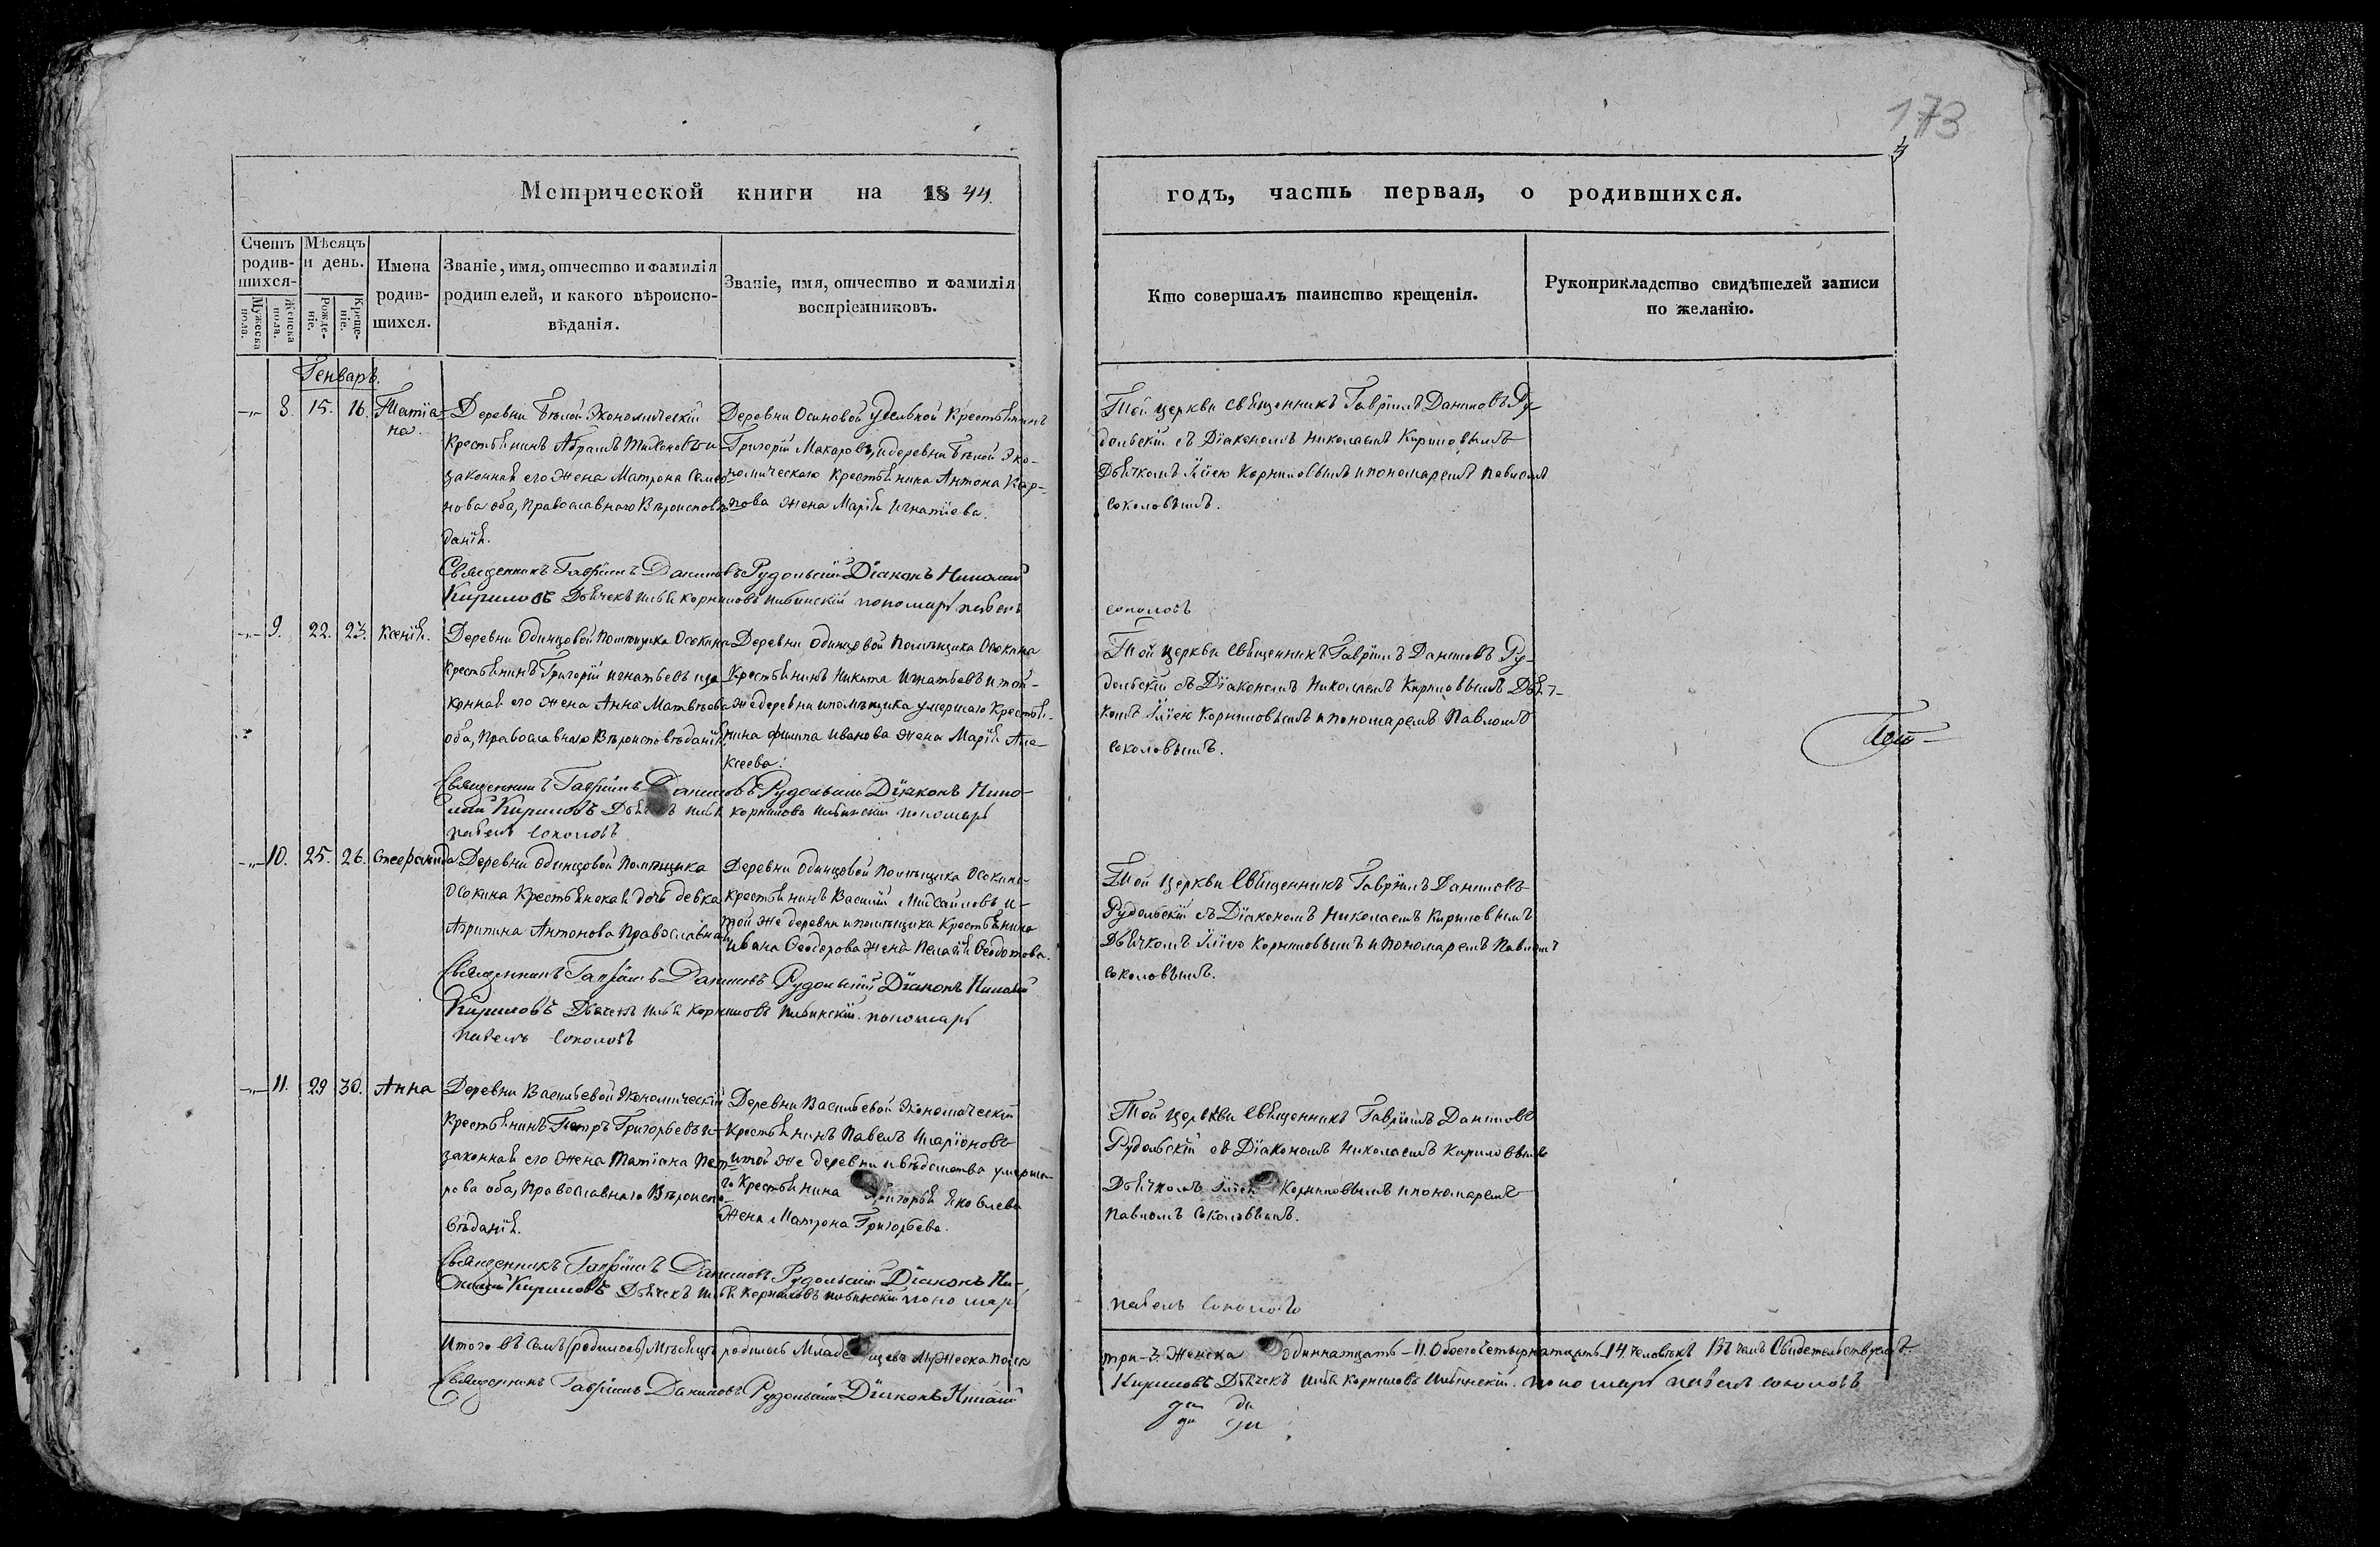 173
4
Метрической книги на 1844.
годъ, часть первая, о родившихся.
Счетъ родившихся.
Мужеска пола.
Женска пола.
Мѣсяцъ и день.
Рожденіе.
Крещеніе.
Имена родившихся.
Званіе, имя, отчество и фамилія родителей, и какого вѣроисповѣданія.
Званіе, имя, отчество и фамилія воспріемниковъ.
Кто совершалъ таинство крещенія.
Рукоприкладство свидѣтелей записи по желанію.
Генварь.
8. 15. 16. Татіа-
на.
Деревни Бѣлой Экономическій
Крестьянинъ Абрамъ Тихоновъ и
законная его жена Матрона Семе
нова оба, Православного Вѣроисповѣ
данія.
Деревни Осиновой удѣльной Крестьянинъ
Григорій Макаровъ, и деревни Бѣлой Эко-
номического Крестьянина Антона Кар-
пова жена Марія Игнатіева.
Той церкви священникъ Гавріилъ Даниловъ Ру-
дольскій съ Діакономъ Николаемъ Кириловымъ
Дьячкомъ Иліею Корниловымъ и пономаремъ Павломъ
Соколовымъ.
Священникъ Гавріилъ Даниловъ Рудольскій Діаконъ Николай
Кириловъ Дьячекъ Илья Корниловъ Ильинскій пономарь павелъ
соколовъ
9. 22. 23. Ксенія.
Деревни Одинцовой Помѣщика Осокина
Крестьянинъ Григорій Игнатьевъ и за-
конная его жена Анна Матвѣева
оба, Православного Вѣроисповѣданія.
Деревни Одинцовой Помѣщика Осокина
Крестьянинъ Никита Игнатьевъ и той-
же деревни и помѣщика умершаго Крестья-
нина Филипа Иванова жена Марія Але-
ксеева.
Той церкви Священникъ Гавріилъ Даниловъ Ру-
дольскій съ Діакономъ Николаемъ Кириловымъ Дьяч-
комъ Иліею Корниловымъ и пономаремъ Павломъ
Соколовымъ.
Священникъ Гавріилъ Даниловъ Рудольскій Діаконъ Нико-
лай Кириловъ Дьячекъ Илья Корниловъ Ильинскій пономарь
павелъ Соколовъ
10. 25. 26. Стефанида
Деревни Одинцовой Помѣщика
Осокина Крестьянская дочь девка
Агрипина Антонова Православная
Деревни Одинцовой Помѣщика Осокина
крестьянинъ Василій Михайловъ и-
той же деревни и помѣщика Крестьянина
Ивана Феодорова жена Пелагія Феодотова.
Той церкви Священникъ Гавріилъ Даниловъ
Рудольскій съ Діакономъ Николаемъ Кириловымъ
Дьячкомъ Иліею Корниловымъ и Пономаремъ Павломъ
соколовымъ.
Священникъ Гавріилъ Даниловъ Рудольскій Діаконъ Николай
Кириловъ Дьячекъ Илья Корниловъ Ильинскій пономарь
павелъ Соколовъ
11. 29 30. Анна
Деревни Васильевой Экономическій
Крестьянинъ Петръ Григорьевъ и-
законная его жена Татіана Пет-
рова оба, Православного Вѣроиспо-
вѣданія.
Деревни Васильевой Экономическій
Крестьянинъ Павелъ Иларіоновъ
и той же деревни и вѣдомства умерша-
го Крестьянина Григорія Яковлева
жена Матрона Григорьева.
Той церкви Священникъ Гавріилъ Даниловъ
Рудольскій съ Діакономъ Николаемъ Кириловымъ
Дьячкомъ Иліею Корниловымъ и пономаремъ
Павломъ Соколовымъ.
Священникъ Гавріилъ Даниловъ Рудольскій Діаконъ Ни-
колай Кириловъ Дьячекъ Илья Корниловъ Ильинскій пономарь
павелъ Соколовъ
Итого въ семъ (родилось) Мѣсяцѣ родилось Младенцевъ Мужеска пола
три-3. Женска одиннатцать-11. Обоего четырнатцать 14. человѣкъ Въ чемъ Свидетельствуемъ.
Священникъ Гавріилъ Даниловъ Рудольскій Діаконъ Николай
Кириловъ Дьячекъ Илья Корниловъ Ильинскій. пономарь павелъ соколовъ